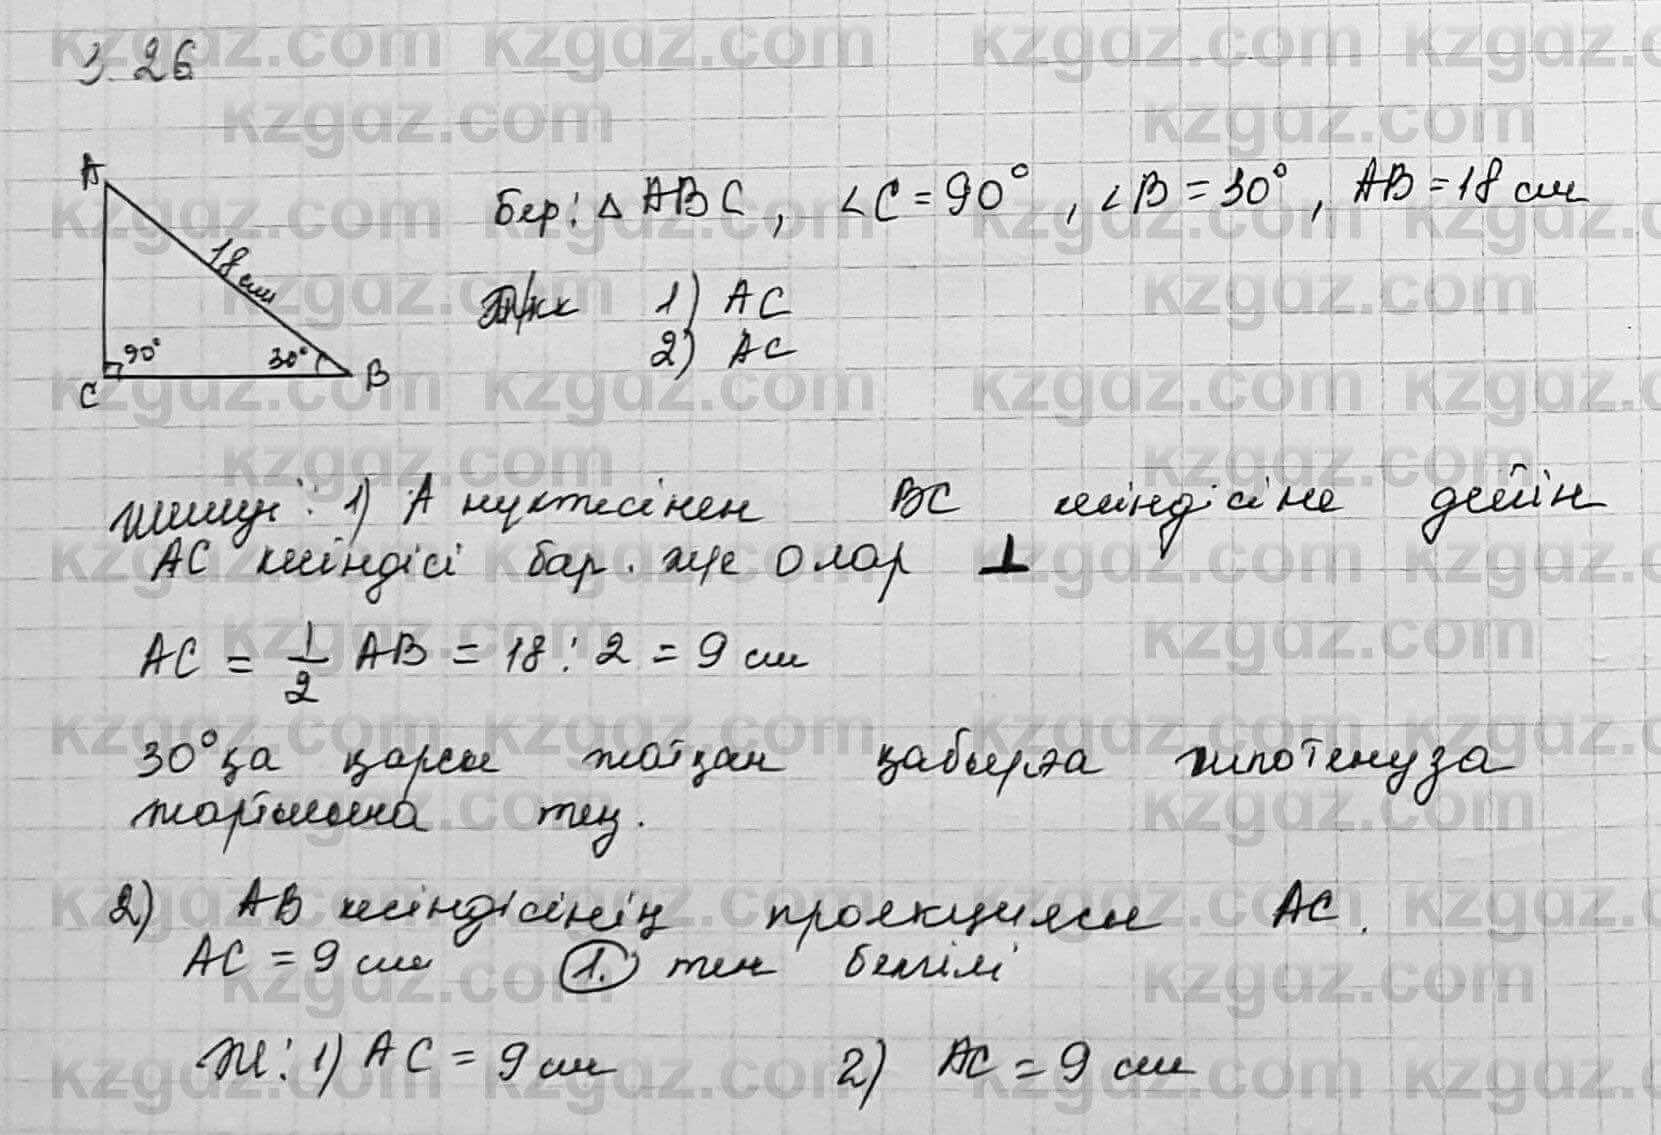 3.26
A
18 см
90°
30°
C
B
Бер: △ABC, ∠C = 90°, ∠B = 30°, AB = 18 см
Т/к 1) AC
2) AC
Шешуі: 1) A нүктесінен BC кесіндісіне дейін
AC кесіндісі бар. және олар ⊥
AC = 1/2 AB = 18 : 2 = 9 см
30°қа қарсы жатқан қабырға гипотенуза
жартысына тең.
2) AB кесіндісінің проекциясы AC.
AC = 9 см 1. тен белгілі
Ж: 1) AC = 9 см 2) AC = 9 см
kzgdz.com